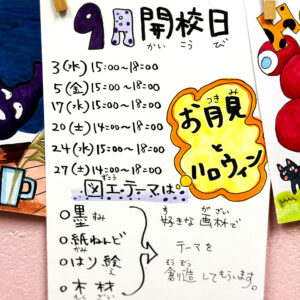 9月 開校日
かい こう び
3(水) 15:00〜18:00
5(金) 15:00〜18:00
17(水) 15:00〜18:00
20(土) 14:00〜18:00
24(水) 15:00〜18:00
27(土) 14:00〜18:00
つきみ
お月見
と
ハロウィン
ずこう
図工テーマは。
○墨 すみ
○紙ねんど
かみ
○はり絵
え
○木材
もくざい
す が ざい
好きな画材で
テーマを
そうぞう
創造してもらいます。